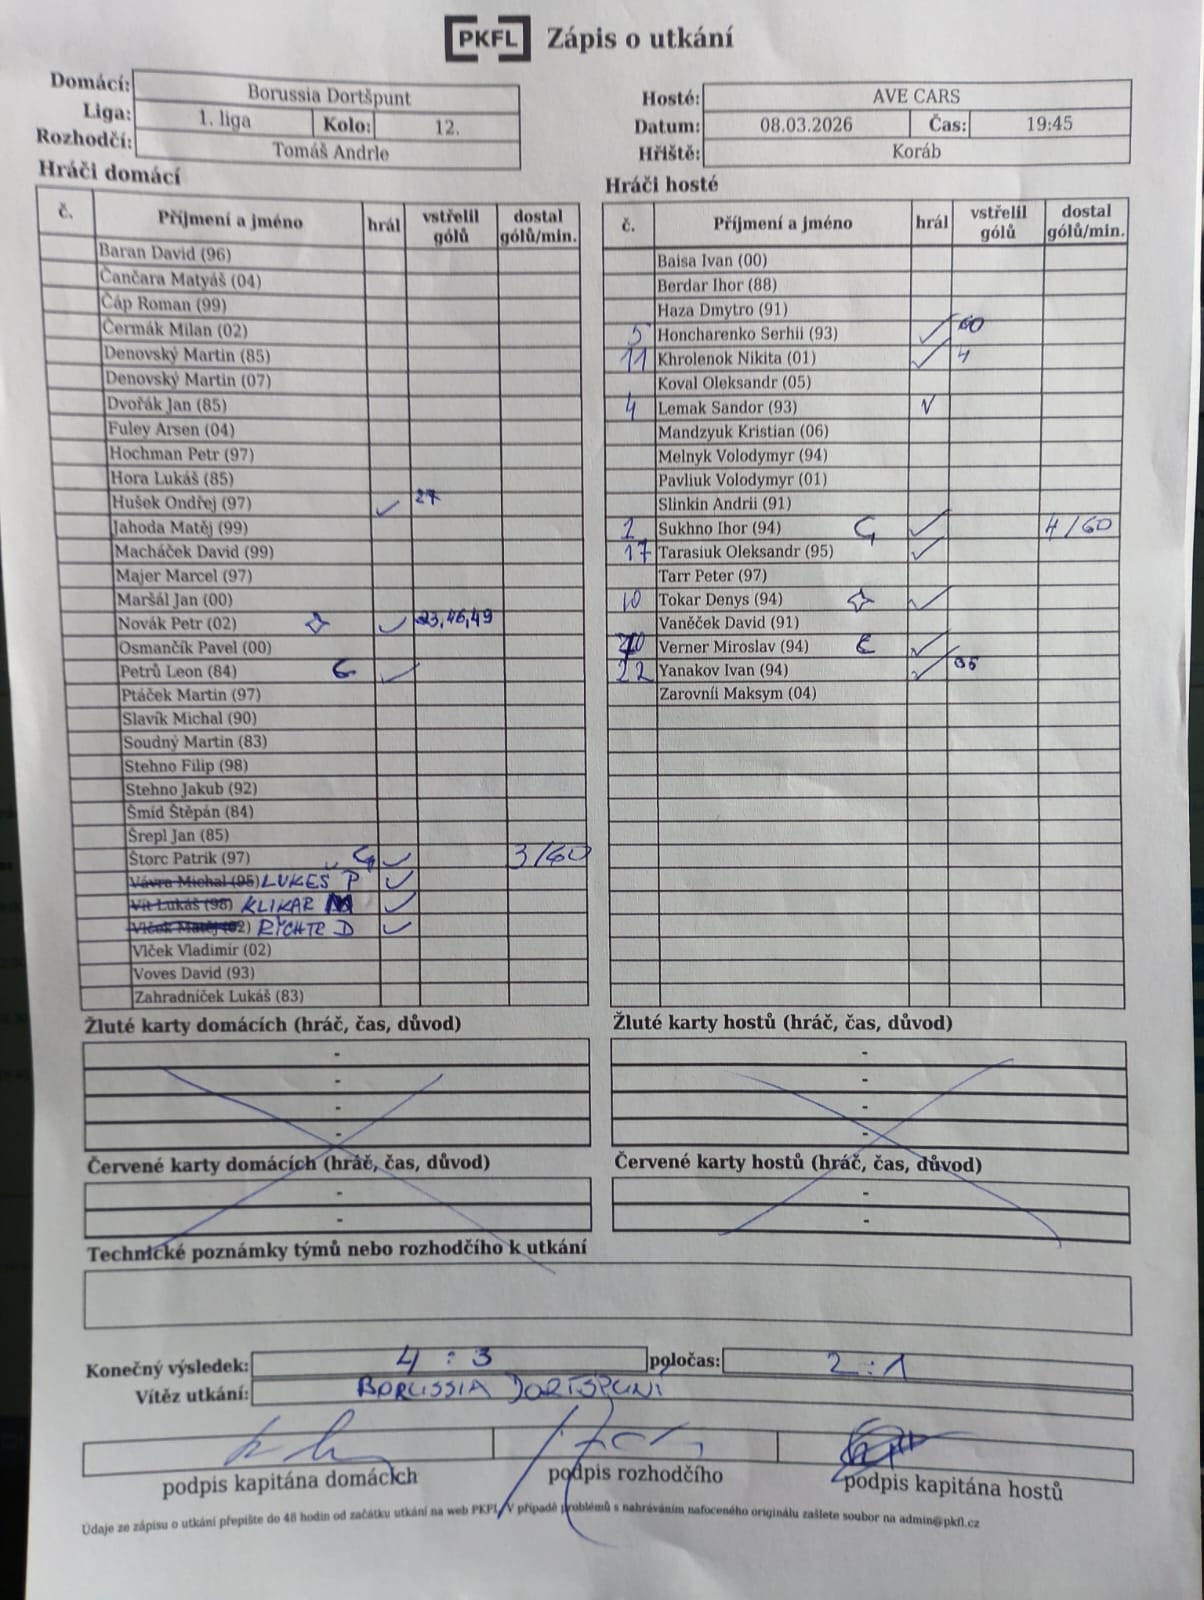 PKFL Zápis o utkání
Domácí: Borussia Dortšpunt
Liga: 1. liga Kolo: 12.
Rozhodčí: Tomáš Andrle
Hosté: AVE CARS
Datum: 08.03.2026 Čas: 19:45
Hřiště: Koráb
Hráči domácí
č. Příjmení a jméno hrál vstřelil gólů dostal gólů/min.
Baran David (96)
Čančara Matyáš (04)
Čáp Roman (99)
Čermák Milan (02)
Denovský Martin (85)
Denovský Martin (07)
Dvořák Jan (85)
Fuley Arsen (04)
Hochman Petr (97)
Hora Lukáš (85)
Hušek Ondřej (97) ✓ 27
Jahoda Matěj (99)
Macháček David (99)
Majer Marcel (97)
Maršál Jan (00)
Novák Petr (02) ✓ 23,46,49
Osmančík Pavel (00)
Petrů Leon (84) ✓
Ptáček Martin (97)
Slavík Michal (90)
Soudný Martin (83)
Stehno Filip (98)
Stehno Jakub (92)
Šmíd Štěpán (84)
Šrepl Jan (85)
Štorc Patrik (97) G ✓ 3/60
Vávra Michal (95) LUKEŠ P ✓
Vít Lukáš (98) KLIKAR ✓
Vlček Matěj (02) RYCHTE D ✓
Vlček Vladimír (02)
Voves David (93)
Zahradníček Lukáš (83)
Hráči hosté
č. Příjmení a jméno hrál vstřelil gólů dostal gólů/min.
Baisa Ivan (00)
Berdar Ihor (88)
Haza Dmytro (91)
5 Honcharenko Serhii (93) ✓ 60
11 Khrolenok Nikita (01) ✓ 4
Koval Oleksandr (05)
4 Lemak Sandor (93) ✓
Mandzyuk Kristian (06)
Melnyk Volodymyr (94)
Pavliuk Volodymyr (01)
Slinkin Andrii (91)
1 Sukhno Ihor (94) G ✓ 4/60
17 Tarasiuk Oleksandr (95) ✓
Tarr Peter (97)
10 Tokar Denys (94) ✓
Vaněček David (91)
Verner Miroslav (94) C ✓
22 Yanakov Ivan (94) ✓
Zarovnii Maksym (04)
Žluté karty domácích (hráč, čas, důvod)
-
-
-
-
Žluté karty hostů (hráč, čas, důvod)
-
-
-
-
Červené karty domácích (hráč, čas, důvod)
-
-
Červené karty hostů (hráč, čas, důvod)
-
-
Technické poznámky týmů nebo rozhodčího k utkání
Konečný výsledek: 4 : 3 poločas: 2 : 1
Vítěz utkání: BORUSSIA DORTŠPUNT
podpis kapitána domácích podpis rozhodčího podpis kapitána hostů
Údaje ze zápisu o utkání přepište do 48 hodin od začátku utkání na web PKFL. V případě problémů s nahráváním nafoceného originálu zašlete soubor na admin@pkfl.cz